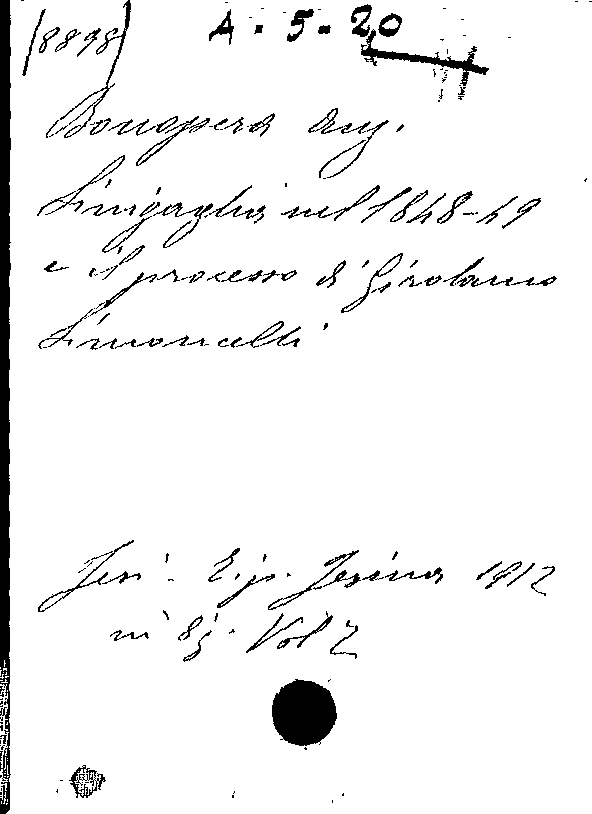 (8898) A. 5. 20
Bonopera Aug.
Sinigaglia nel 1848-49
e il processo di Girolamo
Simoncelli
Jesi - Tip. Jesina 1912
in 8º. Vol 2